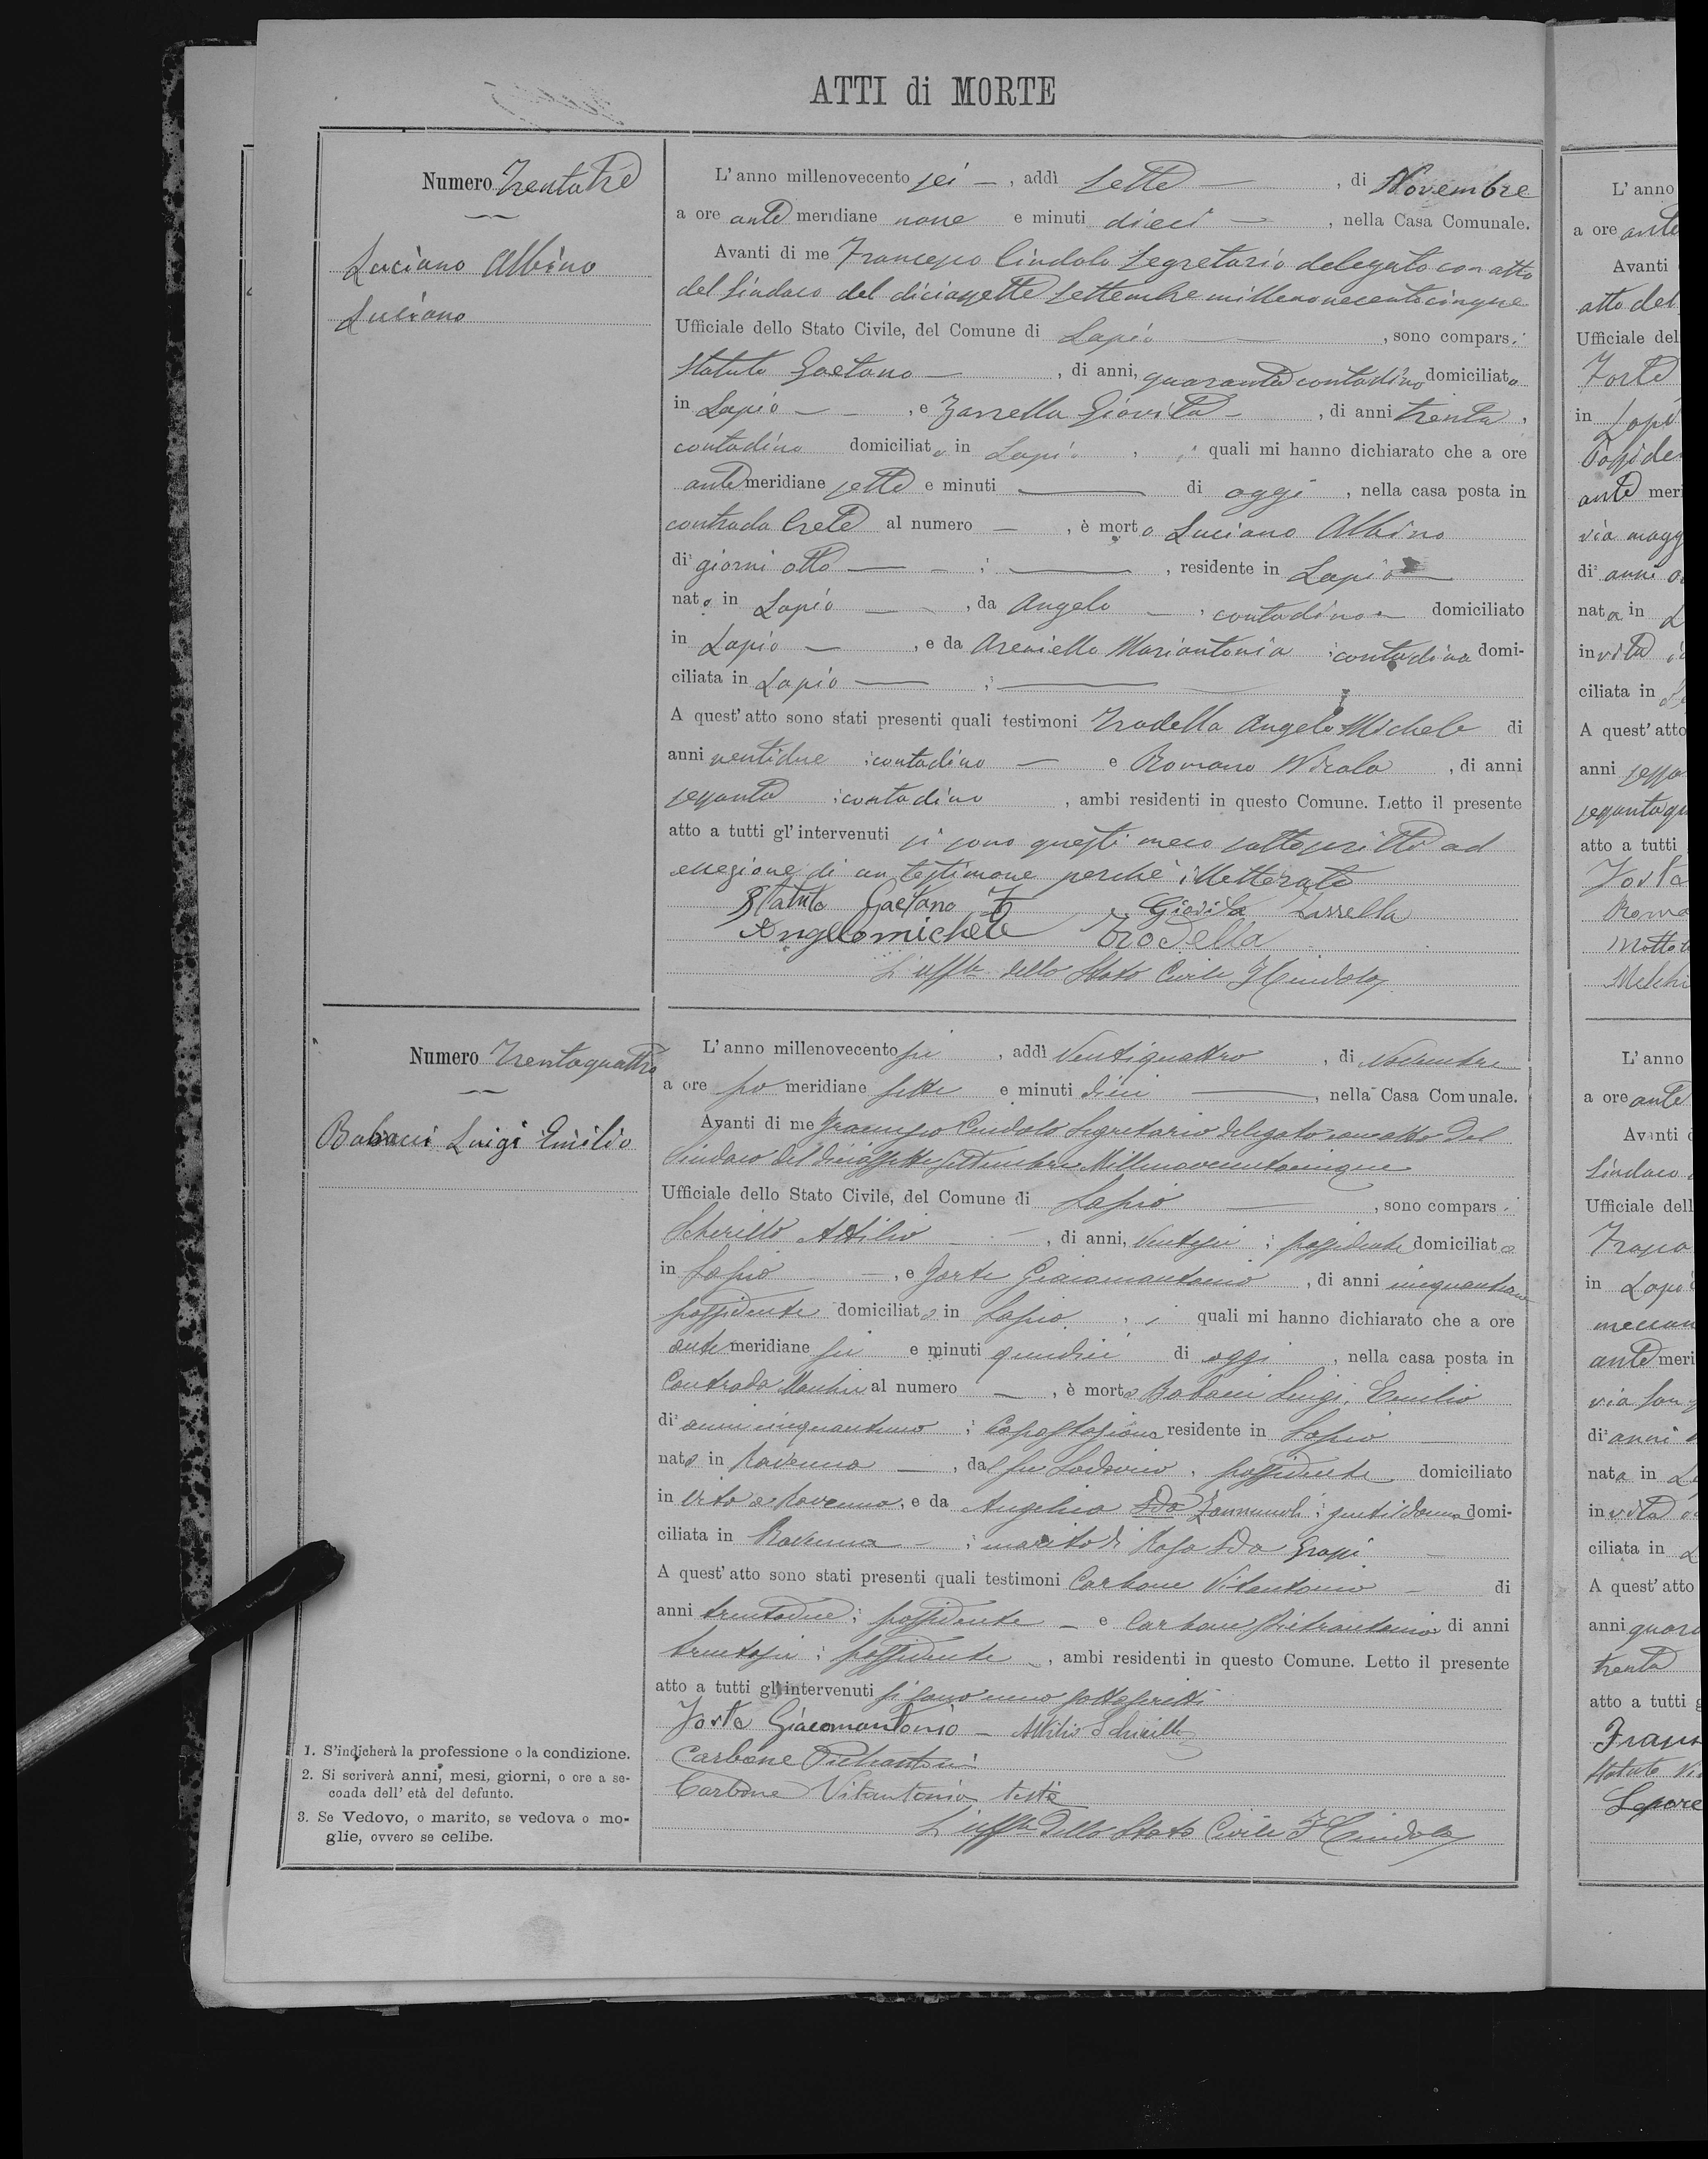 ATTI di MORTE
Numero Trentatre
Luciano Albino
Luciano
L'anno millenovecento sei —, addì sette —, di Novembre
a ore ante meridiane nove e minuti dieci —, nella Casa Comunale.
Avanti di me Francesco Cindolo Segretario delegato con atto
del Sindaco del diciassette settembre millenovecentocinque
Ufficiale dello Stato Civile, del Comune di Lapio —, sono compars i
Statuto Gaetano —, di anni, quaranta contadino domiciliato
in Lapio —, e Zarrella Giovita —, di anni trenta,
contadino domiciliato in Lapio, i quali mi hanno dichiarato che a ore
ante meridiane sette e minuti — di oggi, nella casa posta in
contrada Crete al numero —, è morto Luciano Albino
di giorni otto — ; —, residente in Lapio —
nato in Lapio —, da Angelo —, contadino — domiciliato
in Lapio —, e da Areniello Mariantonia ; contadina domi-
ciliata in Lapio — ; —
A quest'atto sono stati presenti quali testimoni Trodella Angelo Michele di
anni ventidue ; contadino — e Romano Nicola, di anni
sessanta ; contadino, ambi residenti in questo Comune. Letto il presente
atto a tutti gl'intervenuti si sono questi meco sottoscritti ad
eccezione di un testimone perchè illetterato
Statuto Gaetano Giovita Zarrella
Angelomichele Trodella
L'uffle dello Stato Civile F Cindolo
Numero Trentaquattro
Babacci Luigi Emilio
L'anno millenovecento sei, addì Ventiquattro, di Novembre
a ore po meridiane sette e minuti dieci —, nella Casa Comunale.
Avanti di me Francesco Cindolo Segretario delegato con atto del
Sindaco del diciassette settembre Millenovecentocinque
Ufficiale dello Stato Civile, del Comune di Lapio —, sono compars i
Scherillo Attilio —, di anni, Ventisei ; possidente domiciliato
in Lapio —, e Forte Giacomantonio, di anni
possidente domiciliato in Lapio, i quali mi hanno dichiarato che a ore
ante meridiane sei e minuti quindici di oggi, nella casa posta in
Contrada al numero —, è morto Babacci Luigi, Emilio
di anni cinquantuno ; Capostazione residente in Lapio —
nato in Ravenna —, dal fu Lodovico, possidente domiciliato
in vita a Ravenna, e da Angelica ; gentildonna domi-
ciliata in Ravenna — ; marito di Rosa Grassi —
A quest'atto sono stati presenti quali testimoni Carbone Vitantonio — di
anni trentadue ; possidente — e Carbone Pietrantonio di anni
trentasei ; possidente —, ambi residenti in questo Comune. Letto il presente
atto a tutti gl'intervenuti si sono meco sottoscritti
Forte Giacomantonio — Attilio Scherillo
Carbone Pietrantonio
Carbone Vitantonio teste
L'uffle dello Stato Civile F Cindolo
1. S'indicherà la professione o la condizione.
2. Si scriverà anni, mesi, giorni, o ore a se-
conda dell'età del defunto.
3. Se Vedovo, o marito, se vedova o mo-
glie, ovvero se celibe.
L'anno
a ore ante
Avanti
atto del
Ufficiale del
Forte
in Lapi
ante meri
via magg
di anni
nata in L
in vita
ciliata in
A quest'atto
anni
atto a tutti
Forte
L'anno
a ore ante
Avanti
Sindaco
Ufficiale dell
in Lapi
ante meri
via
di anni
nata in L
in vita
ciliata in L
A quest'atto
anni quara
trenta
atto a tutti g
Statuto Vi
Lepore